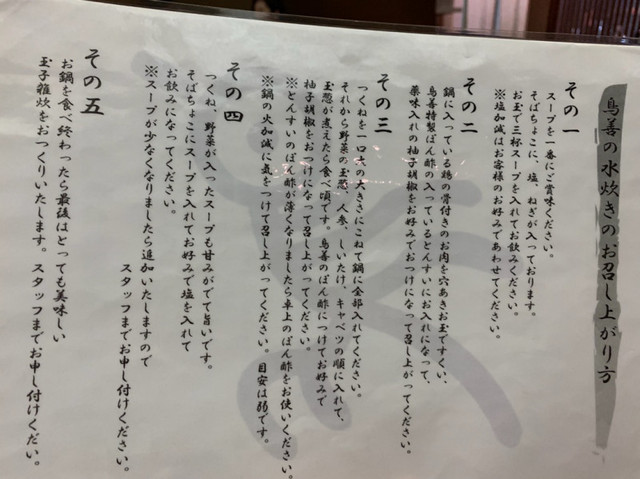 鳥善の水炊きのお召し上がり方
その一
スープを一番にご賞味ください。
そばちょこに、塩、ねぎが入っております。
お玉で三杯スープを入れてお飲みください。
※塩加減はお客様のお好みであわせてください。
その二
鍋に入っている鶏の骨付きのお肉を穴あきお玉ですくい、
鳥善特製ぽん酢の入っているとんすいにお入れになって、
薬味入れの柚子胡椒をお好みでおつけになって召し上がってください。
その三
つくねを一口大の大きさにこねて鍋に全部入れてください。
それから野菜の玉葱、人参、しいたけ、キャベツの順に入れて、
玉葱が煮えたら食べ頃です。鳥善のぽん酢につけてお好みで
柚子胡椒をおつけになって召し上がってください。
※とんすいのぽん酢が薄くなりましたら卓上のぽん酢をお使いください。
※鍋の火加減に気をつけて召し上がってください。目安は弱です。
その四
つくね、野菜が入ったスープも甘みがでて旨いです。
そばちょこにスープを入れてお好みで塩を入れて
お飲みになってください。
※スープが少なくなりましたら追加いたしますので
スタッフまでお申し付けください。
その五
お鍋を食べ終わったら最後はとっても美味しい
玉子雑炊をおつくりいたします。スタッフまでお申し付けください。